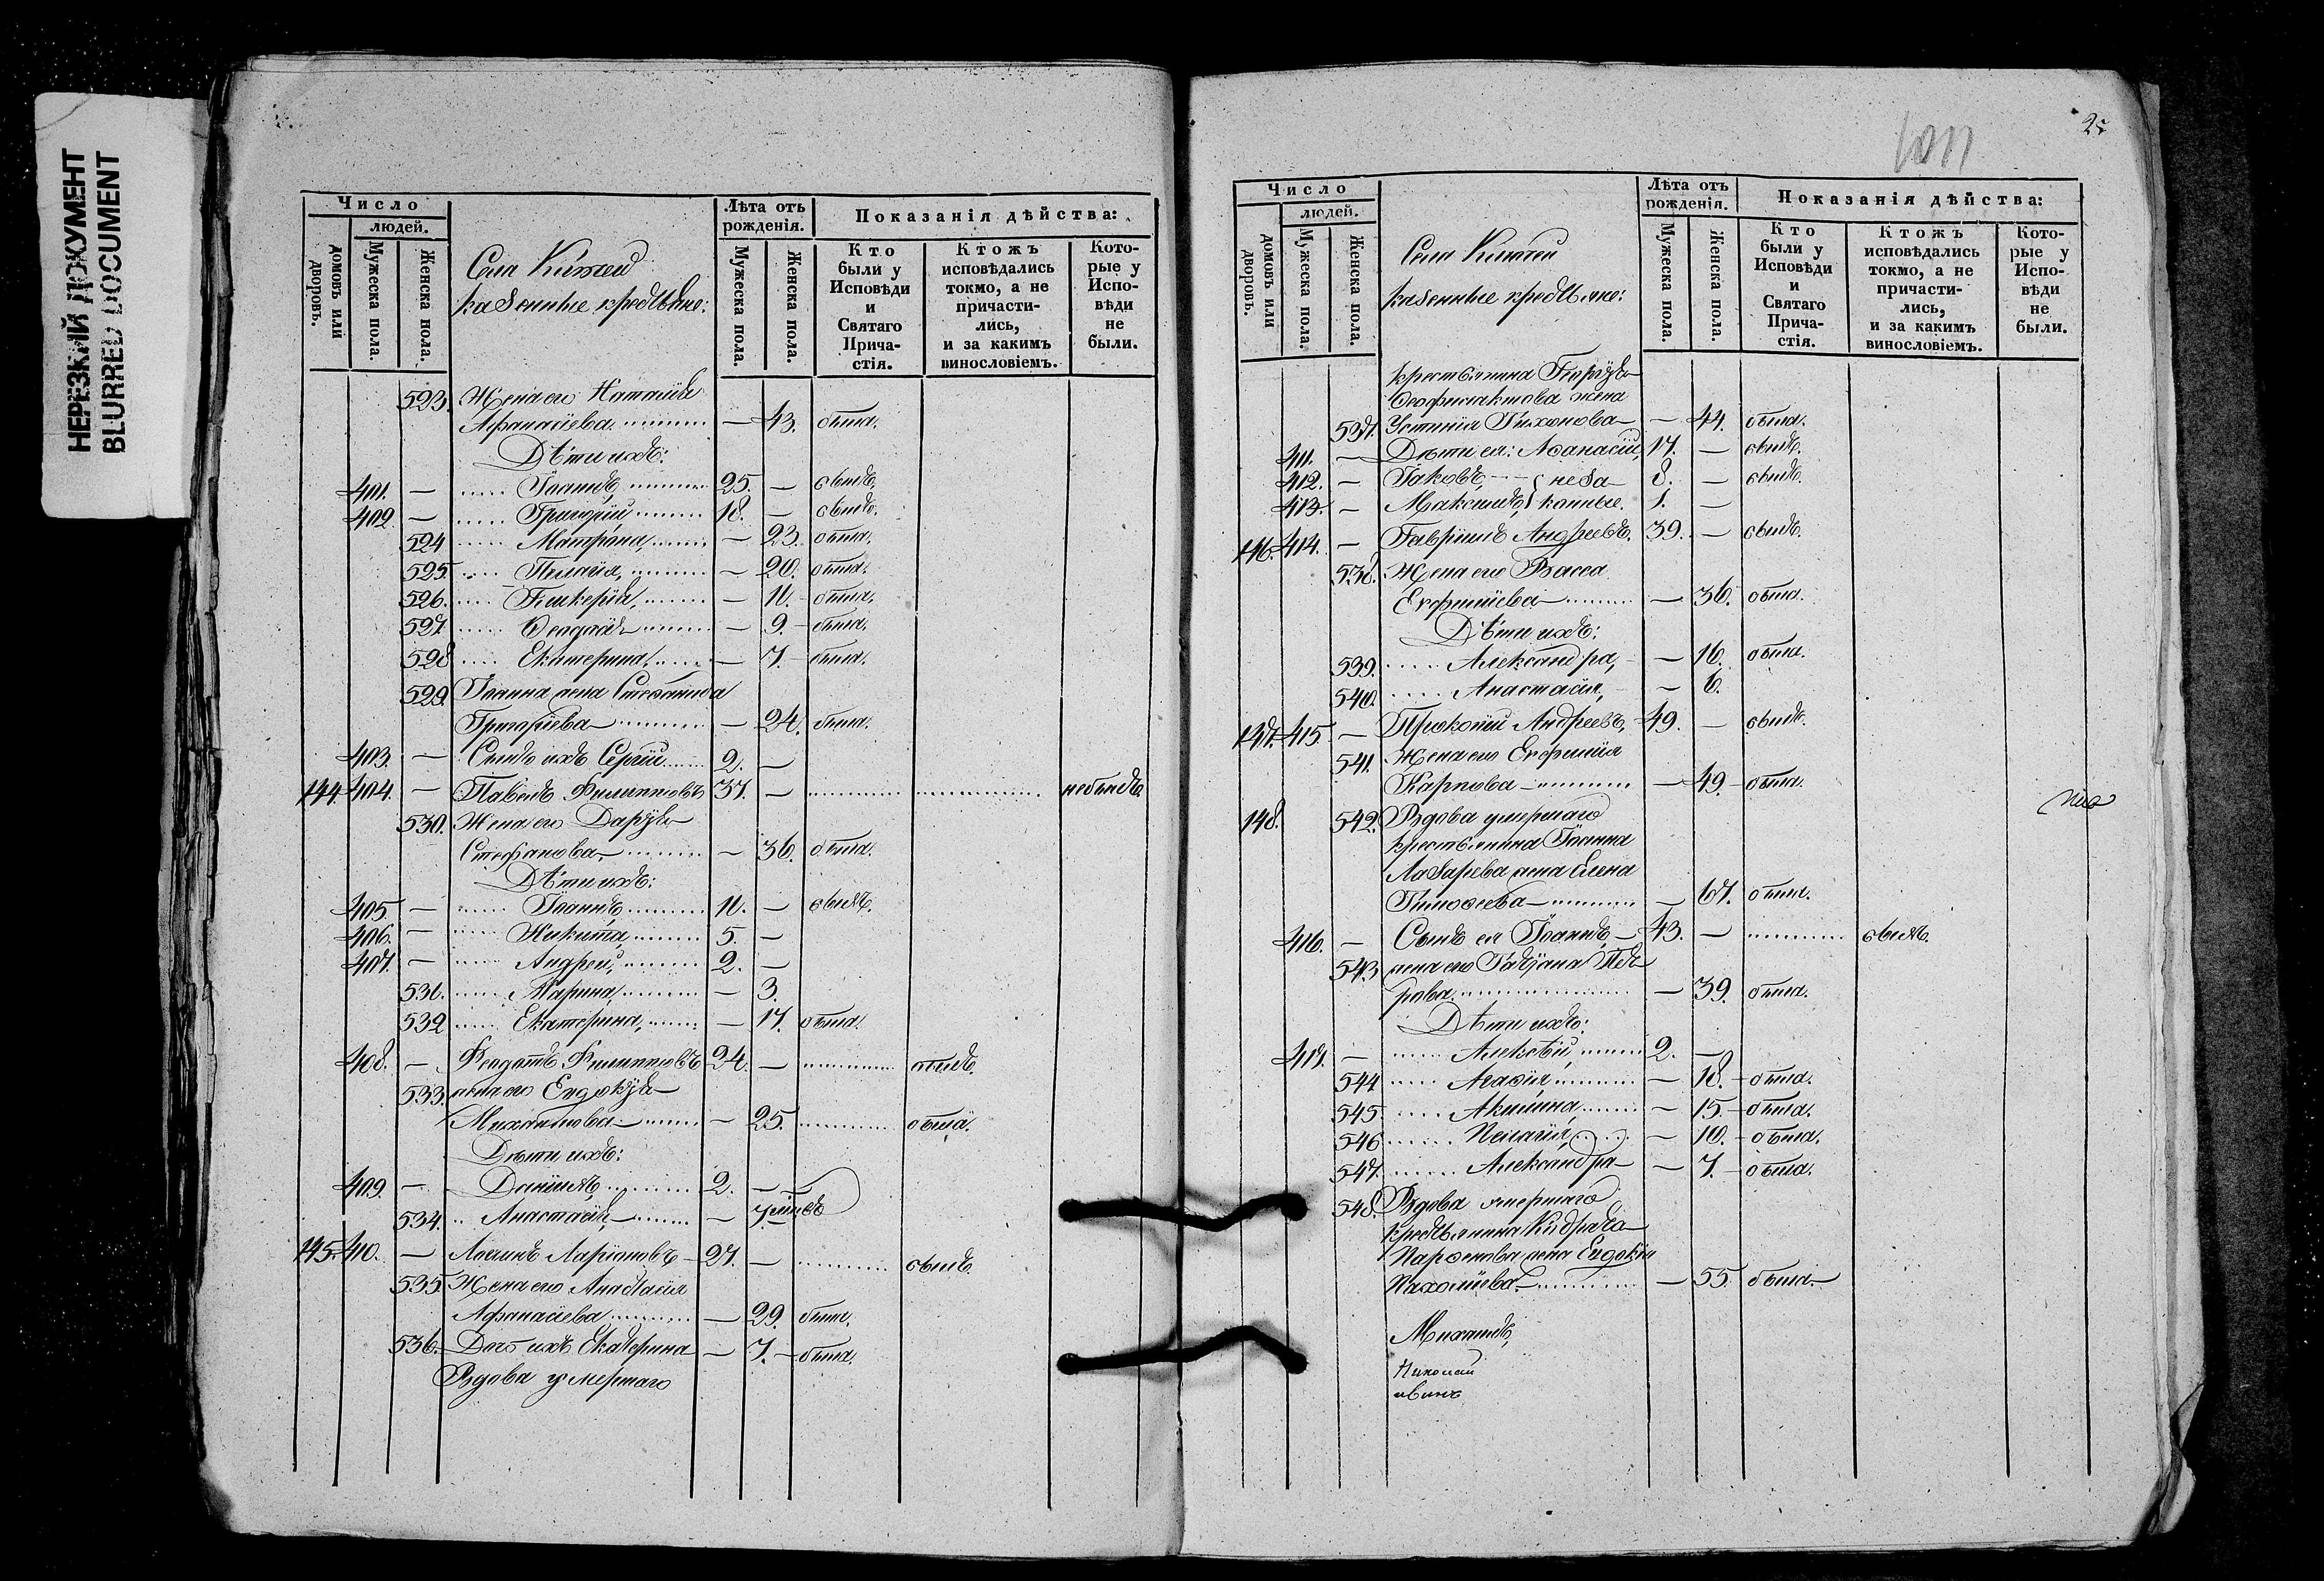 НЕРЕЗКИЙ ДОКУМЕНТ
BLURRED DOCUMENT
Число
людей.
домовъ или дворовъ.
Мужеска пола.
Женска пола.
Лѣта отъ рожденія.
Мужеска пола.
Женска пола.
Показанія дѣйства:
Кто были у Исповѣди и Святаго Прича-стія.
Ктожъ исповѣдались токмо, а не причасти-лись, и за какимъ винословіемъ.
Кото-рые у Испо-вѣди не были.
Села
казенные крестьяне:
523. Жена его Наталія
Афанасіева — 43. была.
Дѣти ихъ:
401. — Іоаннъ, 25. — былъ.
402. — Григорій 18. — былъ.
524 Матрона, — 23. была.
525. Пелагія, — 20. была.
526. Гликерія, — 11. была.
527. Ѳеодосія — 9. была.
528 Екатерина, — 7. была.
529. Іоанна жена Степанида
Григоріева — 24. была.
403. — Сынъ ихъ Сергій 2. —
144. 404. — Павелъ Филипповъ 37. — небылъ.
530. Жена его Дарья
Стефанова — 36. была.
Дѣти ихъ:
405. — Іоаннъ, 11. — былъ.
406. — Никита, 5. —
407. — Андрей, 2. —
531. Марина, — 3.
532 Екатерина, — 17. была.
408. — Ѳеодотъ Филипповъ 24. — былъ.
533. жена его Евдокія
Михайлова — 25. была.
Дѣти ихъ:
409. — Даніилъ, 2. —
534. Анастасія, — 7.
145. 410. — Ларіоновъ 27. — былъ.
535. Жена его Анастасія
Афанасіева — 29. была.
536. Дочь ихъ Екатерина — 7. была.
Вдова умершаго
Число
людей.
домовъ или дворовъ.
Мужеска пола.
Женска пола.
Лѣта отъ рожденія.
Мужеска пола.
Женска пола.
Показанія дѣйства:
Кто были у Исповѣди и Святаго Прича-стія.
Ктожъ исповѣдались токмо, а не причасти-лись, и за какимъ винословіемъ.
Кото-рые у Испо-вѣди не были.
Села
казенные крестьяне:
крестьянина
Ѳеофилактова жена
537. Устинія Тихонова — 44. была.
411. — Дѣти ея: Аѳанасій, 17. — былъ.
412. — Іаковъ, неза 8. — былъ.
413. — Максимъ, конные. 1. —
146. 414. — Гавріилъ Андреевъ. 39. — былъ.
538. Жена его Васса
Евфиміева — 36. была.
Дѣти ихъ:
539. Александра, — 16. была.
540. Анастасія, — 6.
147. 415 — Прокопій Андреевъ, 49. — былъ.
541. Жена его Евфимія
Карпова — 49. была.
148. 542. Вдова умершаго
крестьянина Іоанна
Лазарева жена Елена
Тимоѳеева — 67. была.
416. — Сынъ ея Іоаннъ 43. — былъ.
543 жена его Татьяна Пет
рова — 39. была.
Дѣти ихъ:
417. — Алексѣй, 2. —
544 Агаѳія, — 18. была.
545. Акилина, — 15. была.
546 Пелагія, — 10. была.
547. Александра — 7. была.
548. Вдова умершаго
крестьянина
Парѳенова жена Евдокія
Пахоміева — 55. была
Михаилъ,
Николай